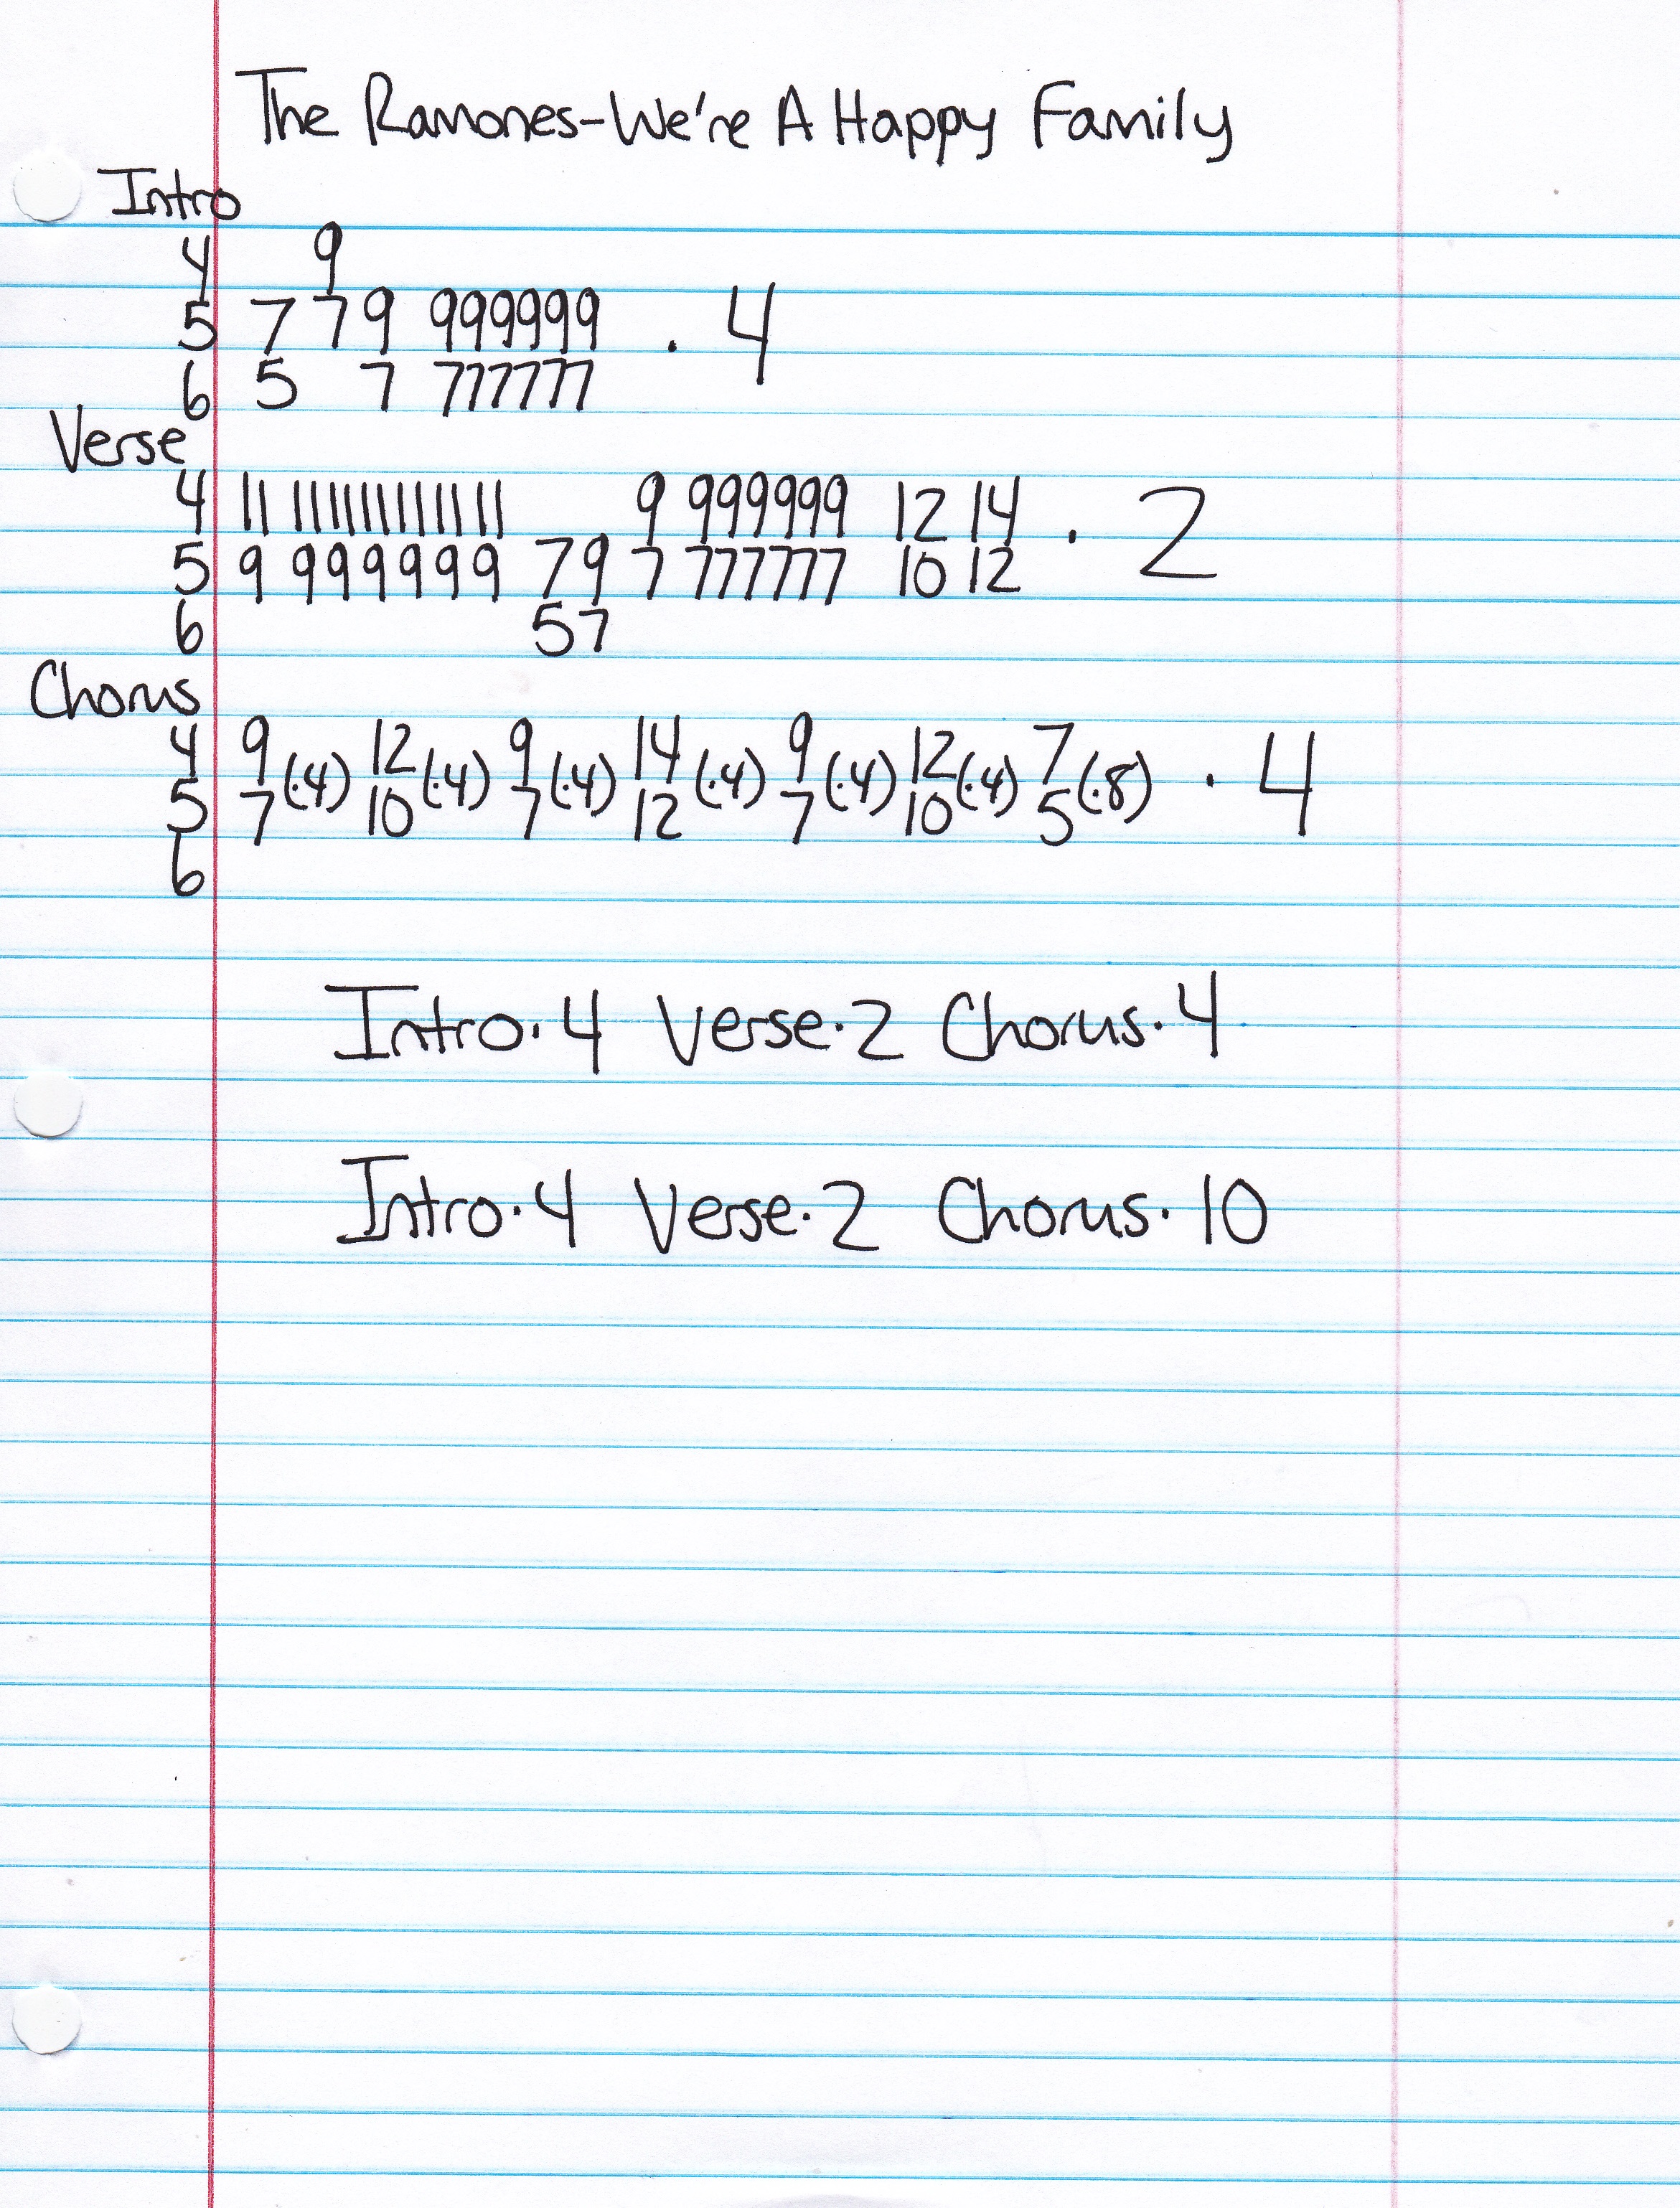 The Ramones-We're A Happy Family
Intro
4 9
5 7 7 9 999999 · 4
6 5 7 777777
Verse
4 11 11 11 11 11 11 11 9 999999 12 14 · 2
5 9 999999 79 7 777777 10 12
6 57
Chorus
4 9 12 9 14 9 12 7
(·4) (·4) (·4) (·4) (·4) (·4) (·8) · 4
5 7 10 7 12 7 10 5
6
Intro·4 Verse·2 Chorus·4
Intro·4 Verse·2 Chorus·10